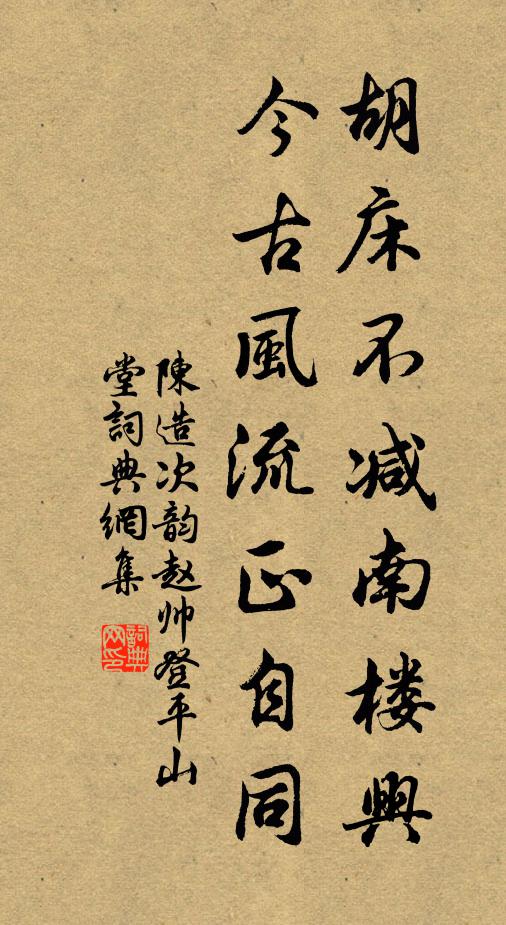 胡床不减南楼興
今古風流正自同
陳造次韵赵帅登平山
堂詞典網集
詞典网印